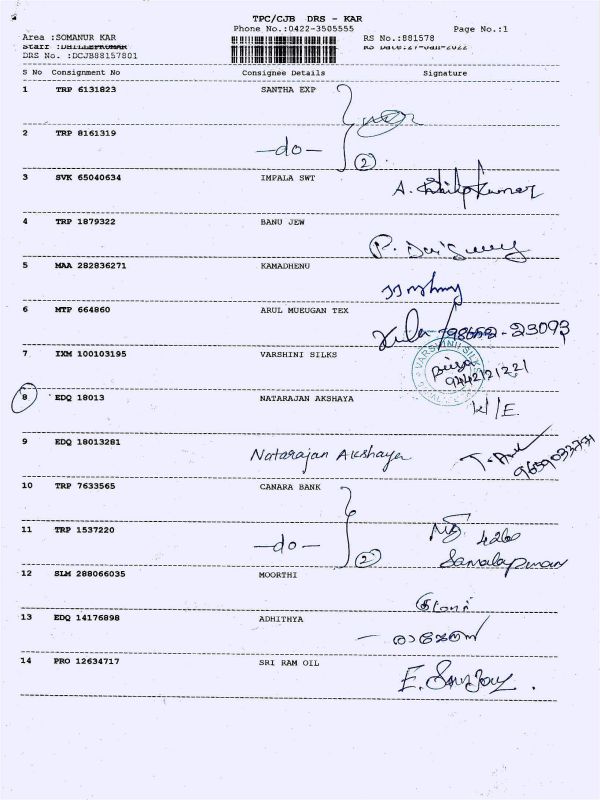 TPC/CJB DRS - KAR
Phone No.:0422-3505555 Page No.:1
Area :SOMANUR KAR RS No.:881578
Staff :DHILLEPKUMAR RS Date:27-Jan-2022
DRS No. :DCJB88157801
S No Consignment No Consignee Details Signature
1 TRP 6131823 SANTHA EXP
2 TRP 8161319
-do- 2
3 SVK 65040634 IMPALA SWT
A. Dhilipkumar
4 TRP 1879322 BANU JEW
5 MAA 282836271 KAMADHENU
6 MTP 664860 ARUL MUEUGAN TEX
23093
7 IXM 100103195 VARSHINI SILKS
VARSHINI SILKS
9442121221
8 EDQ 18013 NATARAJAN AKSHAYA
W/E.
9 EDQ 18013281
Natarajan Akshaya
9659033771
10 TRP 7633565 CANARA BANK
11 TRP 1537220
-do- 2
4260
Samalapuram
12 SLM 288066035 MOORTHI
13 EDQ 14176898 ADHITHYA
14 PRO 12634717 SRI RAM OIL
E. Sanjay.